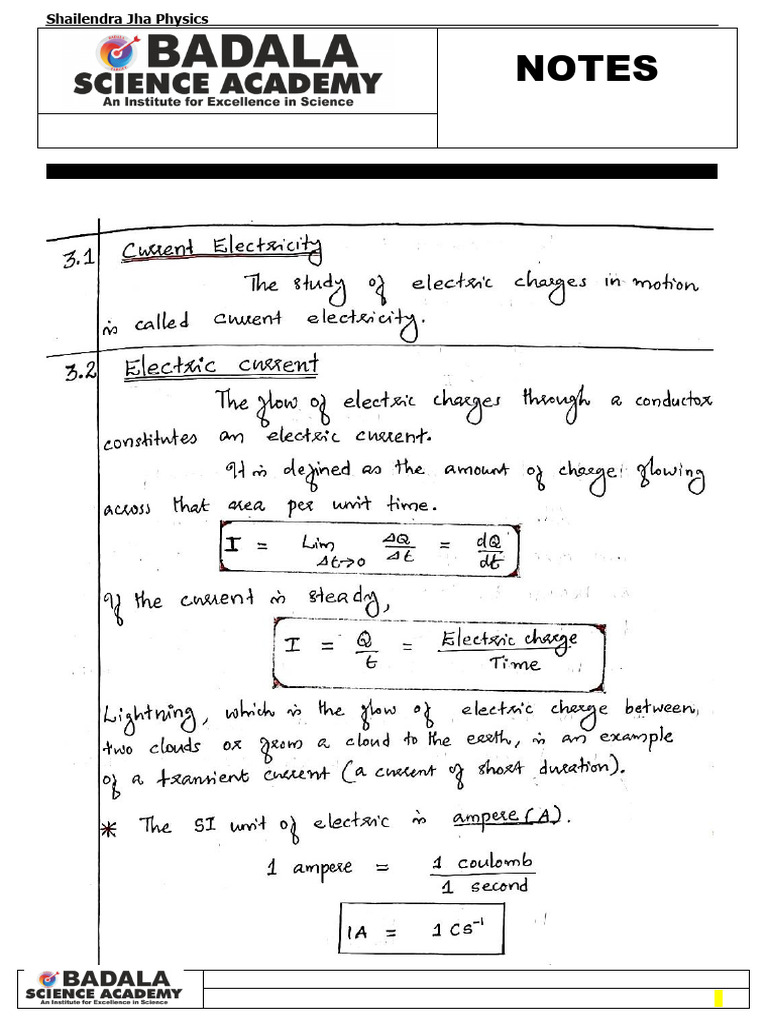 Shailendra Jha Physics
BADALA
SCIENCE ACADEMY
An Institute for Excellence in Science
NOTES
3.1 Current Electricity
The study of electric charges in motion
is called current electricity.
3.2 Electric current
The flow of electric charges through a conductor
constitutes an electric current.
It is defined as the amount of charge flowing
across that area per unit time.
I = Lim Δt→0 ΔQ/Δt = dQ/dt
If the current is steady,
I = Q/t = Electric charge/Time
Lightning, which is the flow of electric charge between
two clouds or from a cloud to the earth, is an example
of a transient current (a current of short duration).
* The SI unit of electric is ampere (A).
1 ampere = 1 coulomb/1 second
1A = 1 Cs⁻¹
BADALA
SCIENCE ACADEMY
An Institute for Excellence in Science